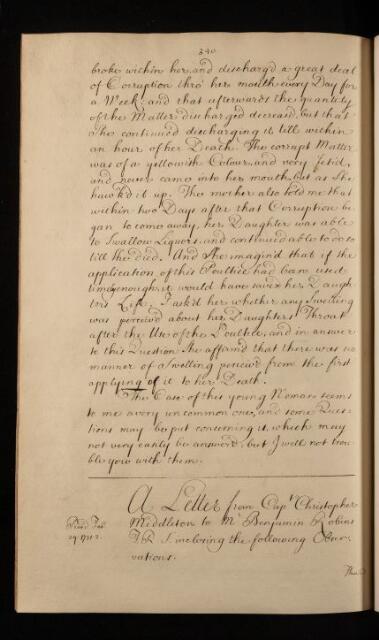 340
broke within her, and discharg'd a great deal
of Corruption thro' her mouth every Day for
a Week; and that afterwards the quantity
of the Matter discharged decreas'd, but that
She continued discharging it till within
an hour of her Death. The corrupt Matter
was of a yellowish Colour, and very fetid,
and never came into her mouth, but as She
hawk'd it up. The mother also told me that
within two Days after that Corruption be-
gan to come away, her Daughter was able
to Swallow Liquors, and continued able to do so
till She died. And She imagin'd that if the
application of this Poultice had been used
time enough, it would have sav'd her Daugh-
ters Life. I ask'd her whether any Swelling
was perceiv'd about her Daughters Throat
after the Use of the Poultice, and in answer
to this Question She affirm'd that there was no
manner of Swelling perceiv'd from the first
applying of it to her Death.
The Case of this young Woman seems
to me a very uncommon one, and some Ques-
tions may be put concerning it, which may
not very easily be answer'd, but I will not trou-
ble you with them.
A Letter from Capt. Christopher
Middleton to Mr. Benjamin Robins
F.R.S. inclosing the following Obser-
vations.
Read
29.